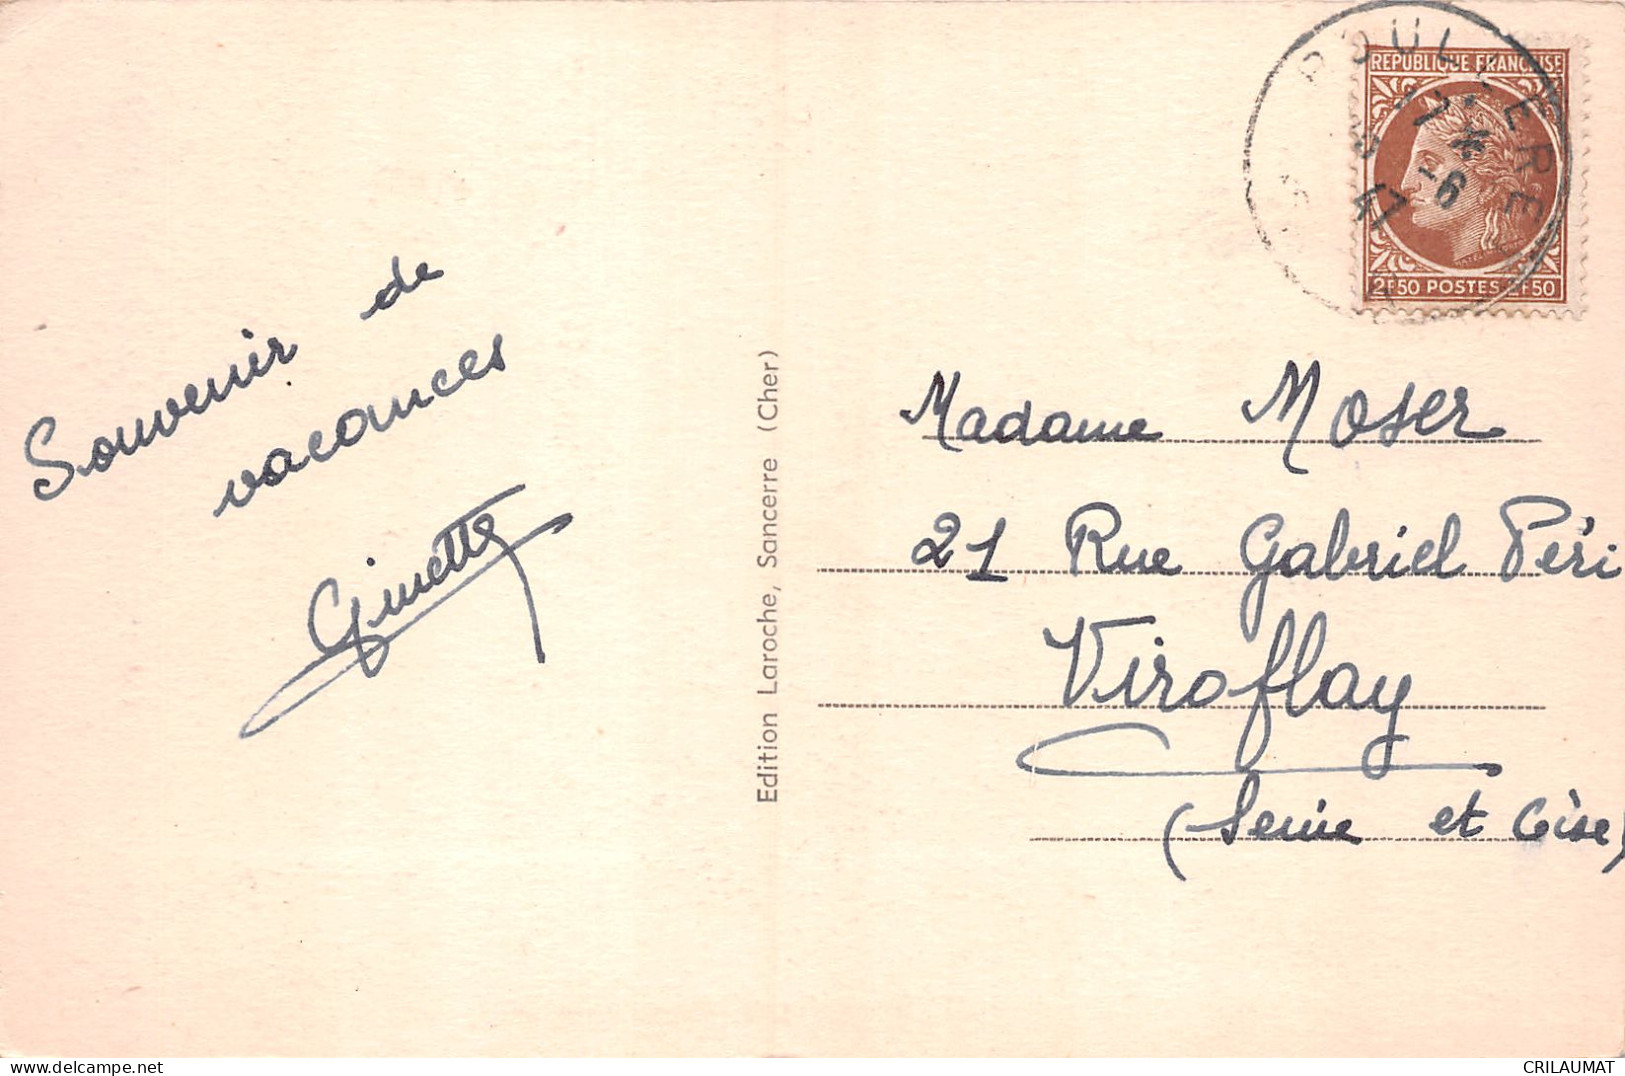 Souvenir de
vacances
Ginette
Edition Laroche, Sancerre (Cher)
REPUBLIQUE FRANÇAISE
2F50 POSTES 2F50
17 *
-6
47
Madame Moser
21 Rue Gabriel Péri
Viroflay
(Seine et Oise)
CRILAUMAT